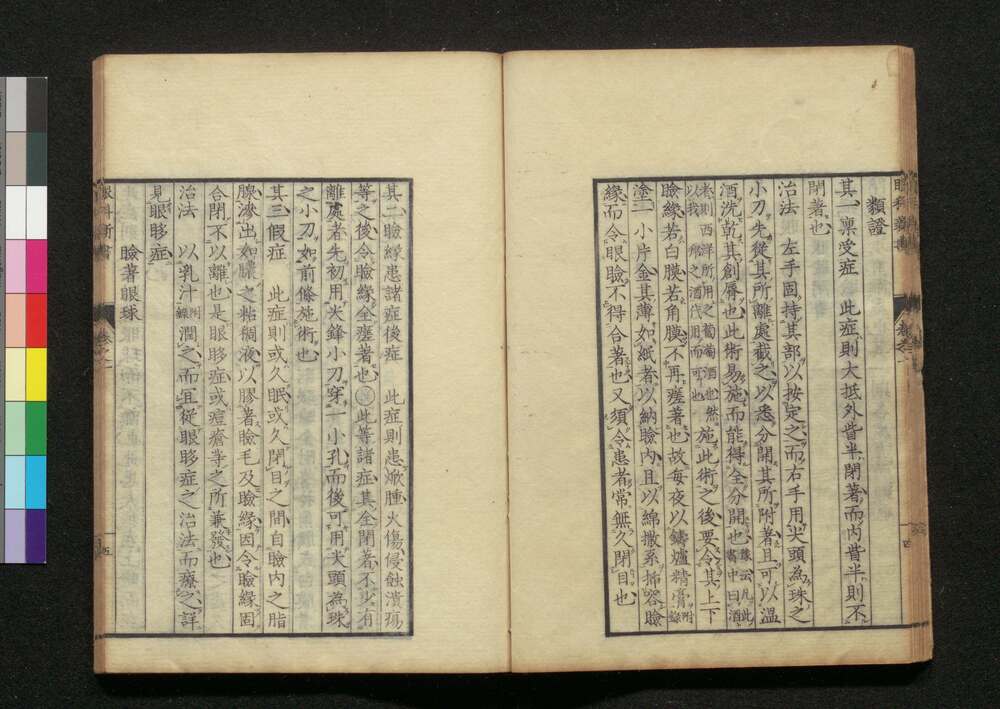 類證
其一稟受症 此症則大抵外眥半閉著而內眥半則不
閉著也
治法 左手固持其部以按定之而右手用尖頭為珠之
小刀先從其所離處截之以悉分開其所附著且可以溫
酒洗乾其創唇也此術易施而能得全分開也
書中曰酒
者則西洋所用之葡萄酒也然施此術之後要令其上下
瞼緣若白膜若角膜不再瘞著也故每夜以鑄爐精膏附錄
塗二小片金其薄如紙者以納瞼內且以綿撒系
緣而令眼瞼不得合著也又須令患者常無久閉目也
眼科新書
其二瞼緣患諸症後症 此症則患焮腫火傷侵蝕潰瘍
等之後令瞼緣全瘞著也此等諸症其全閉著不少有
離處者先初用尖鋒小刀穿一小孔而後可用尖頭為珠
之小刀如前條施術也
其三假症 此症則或久眠或久閉目之間自瞼內之脂
腺滲出如膿之粘稠液以膠著瞼毛及瞼緣因令瞼緣固
合閉不以離也是眼眵症或痘瘡等之所兼發也
治法 以乳汁附錄潤之而宜從眼眵症之治法而療之詳
見眼眵症
瞼著眼球
眼科新書
五